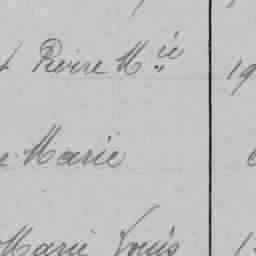 Pierre M.ie 19
Marie
Marie Louis 1